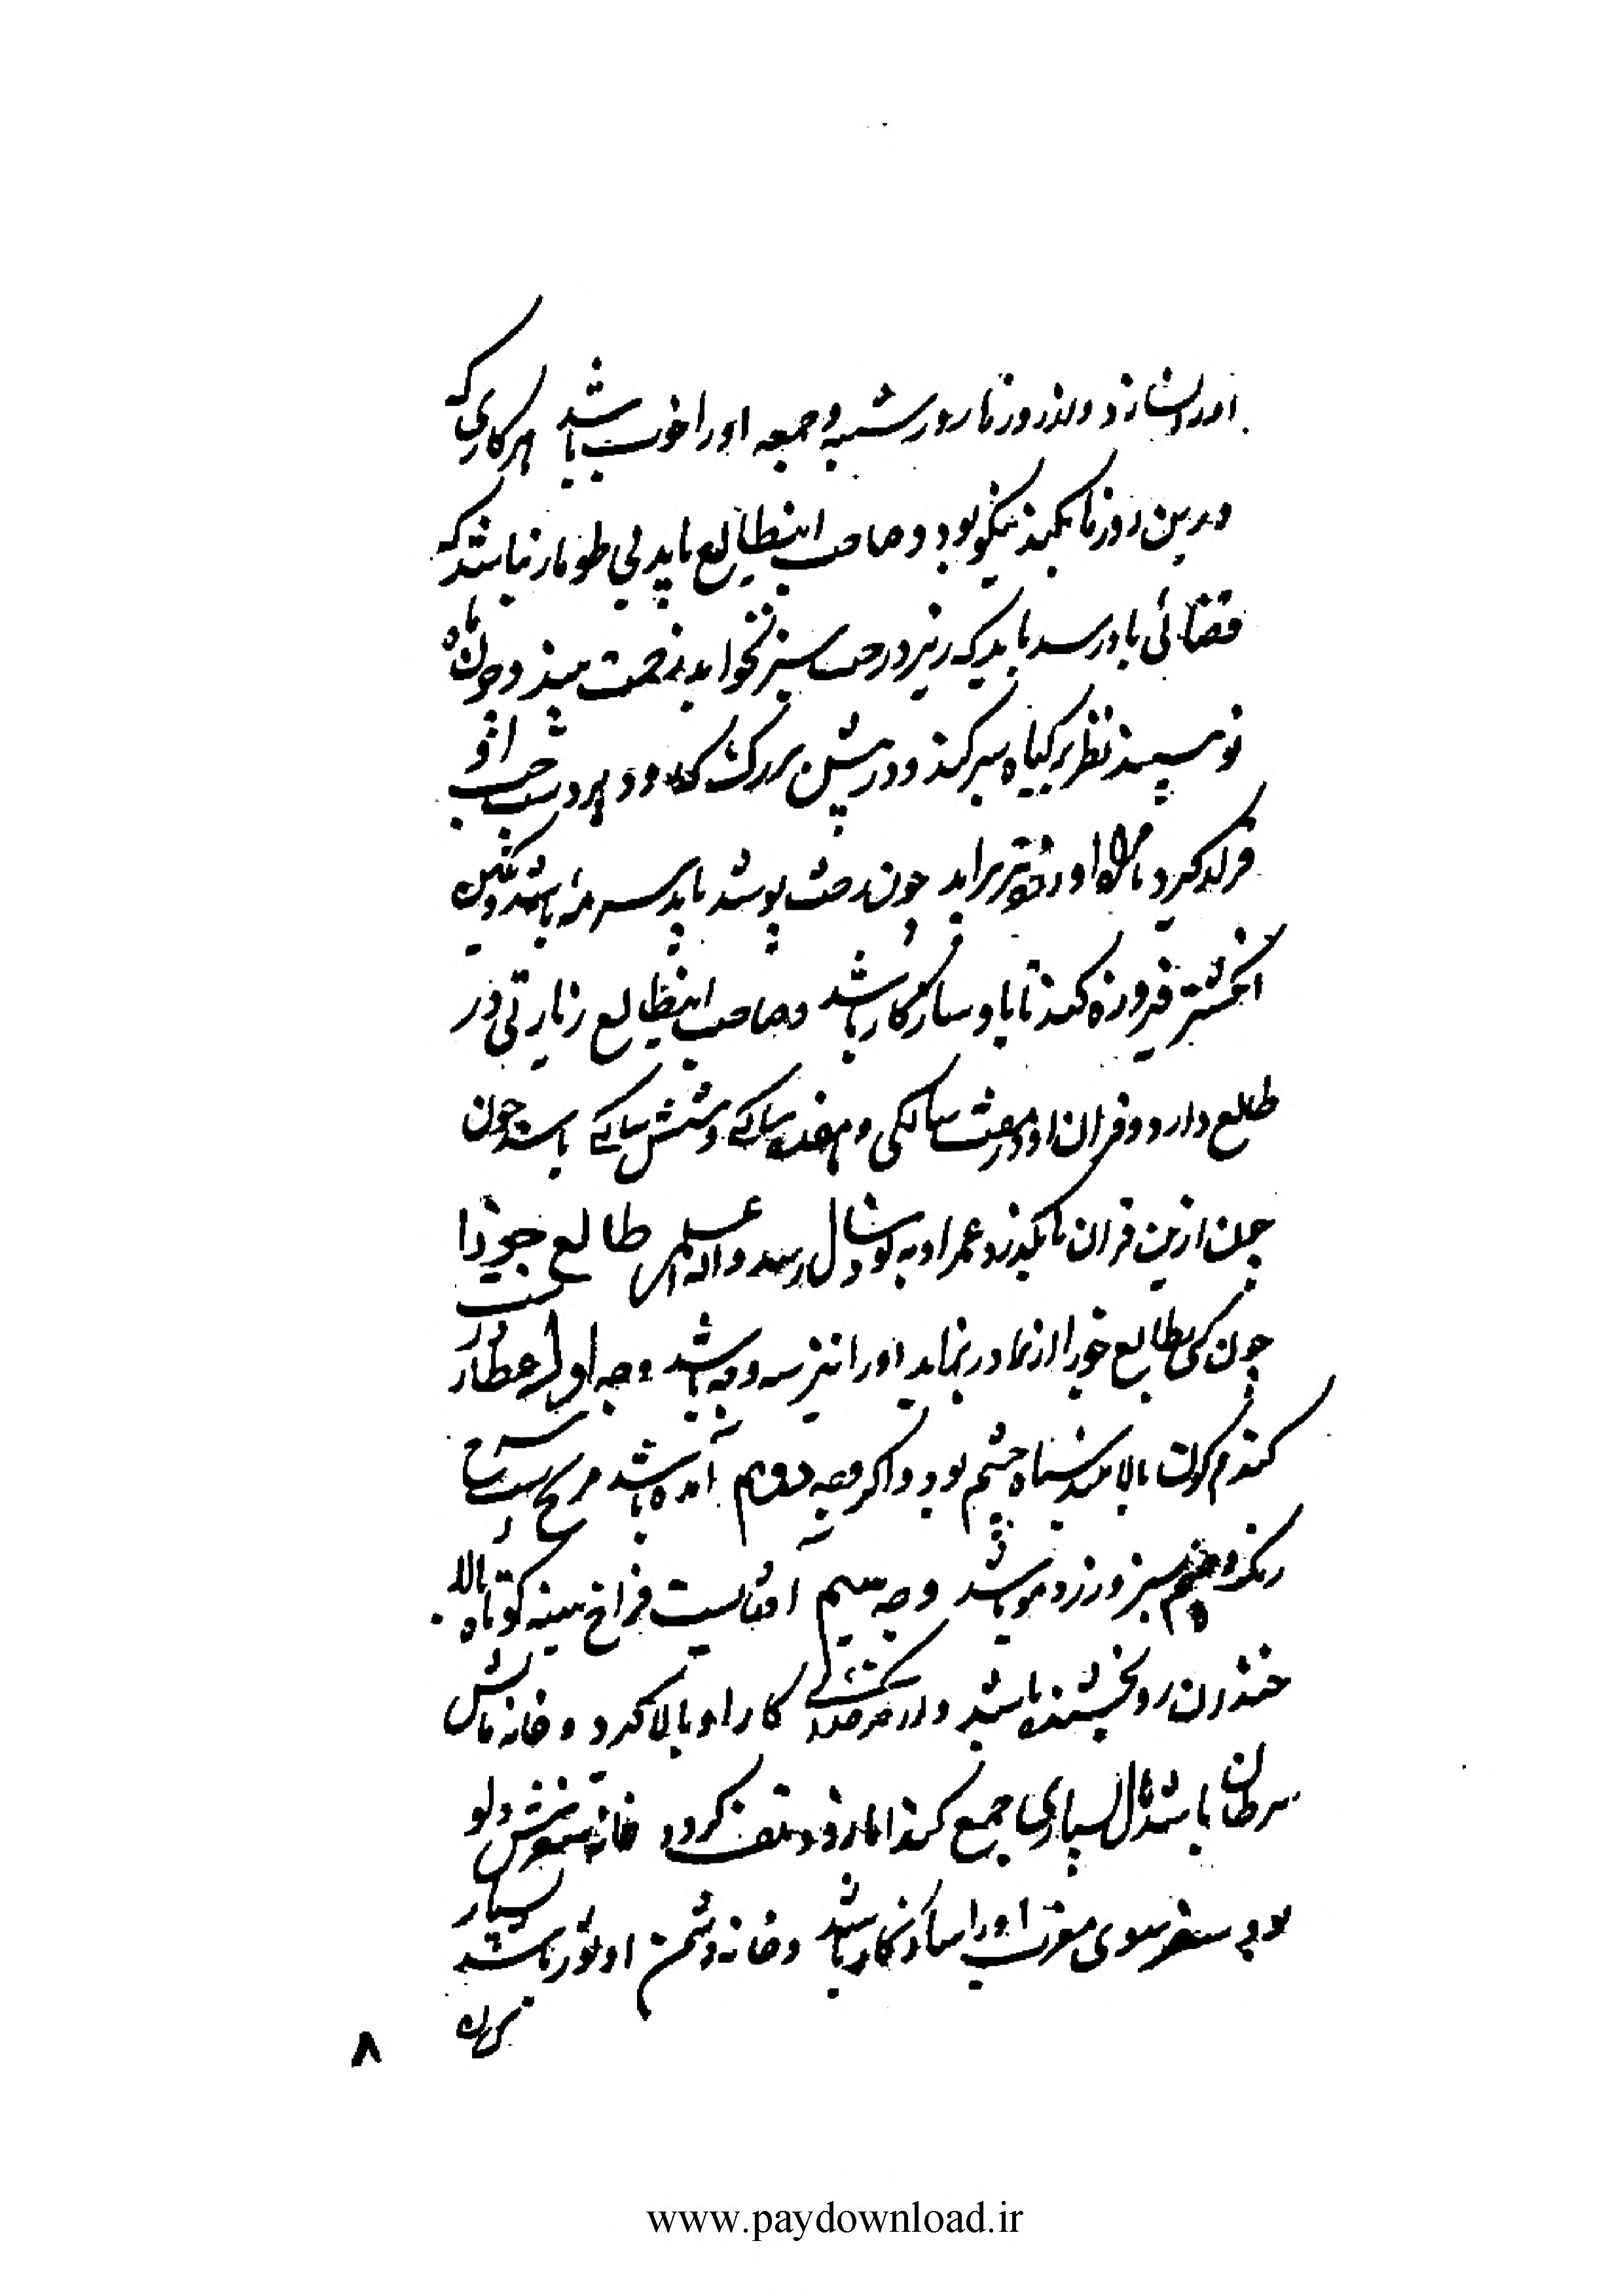 او را نشاند و از روزها روز شنبه و جمعه او را خوب باشد هر کاری که
درین روزها بکند نیکو بود و صاحب اینطالع باید بی طومار نباشد که
قضائی باو رسد باید که زیر درخت سبز نخوابد زحمت بیند و چون ماه
نو ببیند نظر بر گیاه سبز کند و در پیش بزرگ رود هر دو شب
کار او زودتر براید چون رخت پوشد باید سرمه باشد و نگین
انگشتر فیروزه کند تا باو سازگار باشد و صاحب اینطالع زیارتی در
طالع دارد و قران او در هفت سالگی و هفده سالگی و شش سالگی باشد چون
چون ازین قران ها بگذرد عمر او به نود سال رسد والله اعلم طالع جوزا
چون کسی بطالع جوزا از مادر بزاید او را نیز سه وجه باشد وجه اول عطارد است
گندم گون بالا بلند سیاه چشم بود و اگر وجه دویم آمده باشد مریخ است سرخ
رنگ و چشم سبز و زرد مو باشد وجه سیم آفتابست فراخ سینه کوتاه بالا
خندان رو بخشنده باشد و از کار او بالا گیرد و خانه مالش
سرطان باشد مال بسیاری جمع کند اما زود تلف گردد خانه سفرش دلو
بود سفر سوی مغرب او را سازگار باشد و خانه دشمن او ثور باشد بسیار
۸
www.paydownload.ir